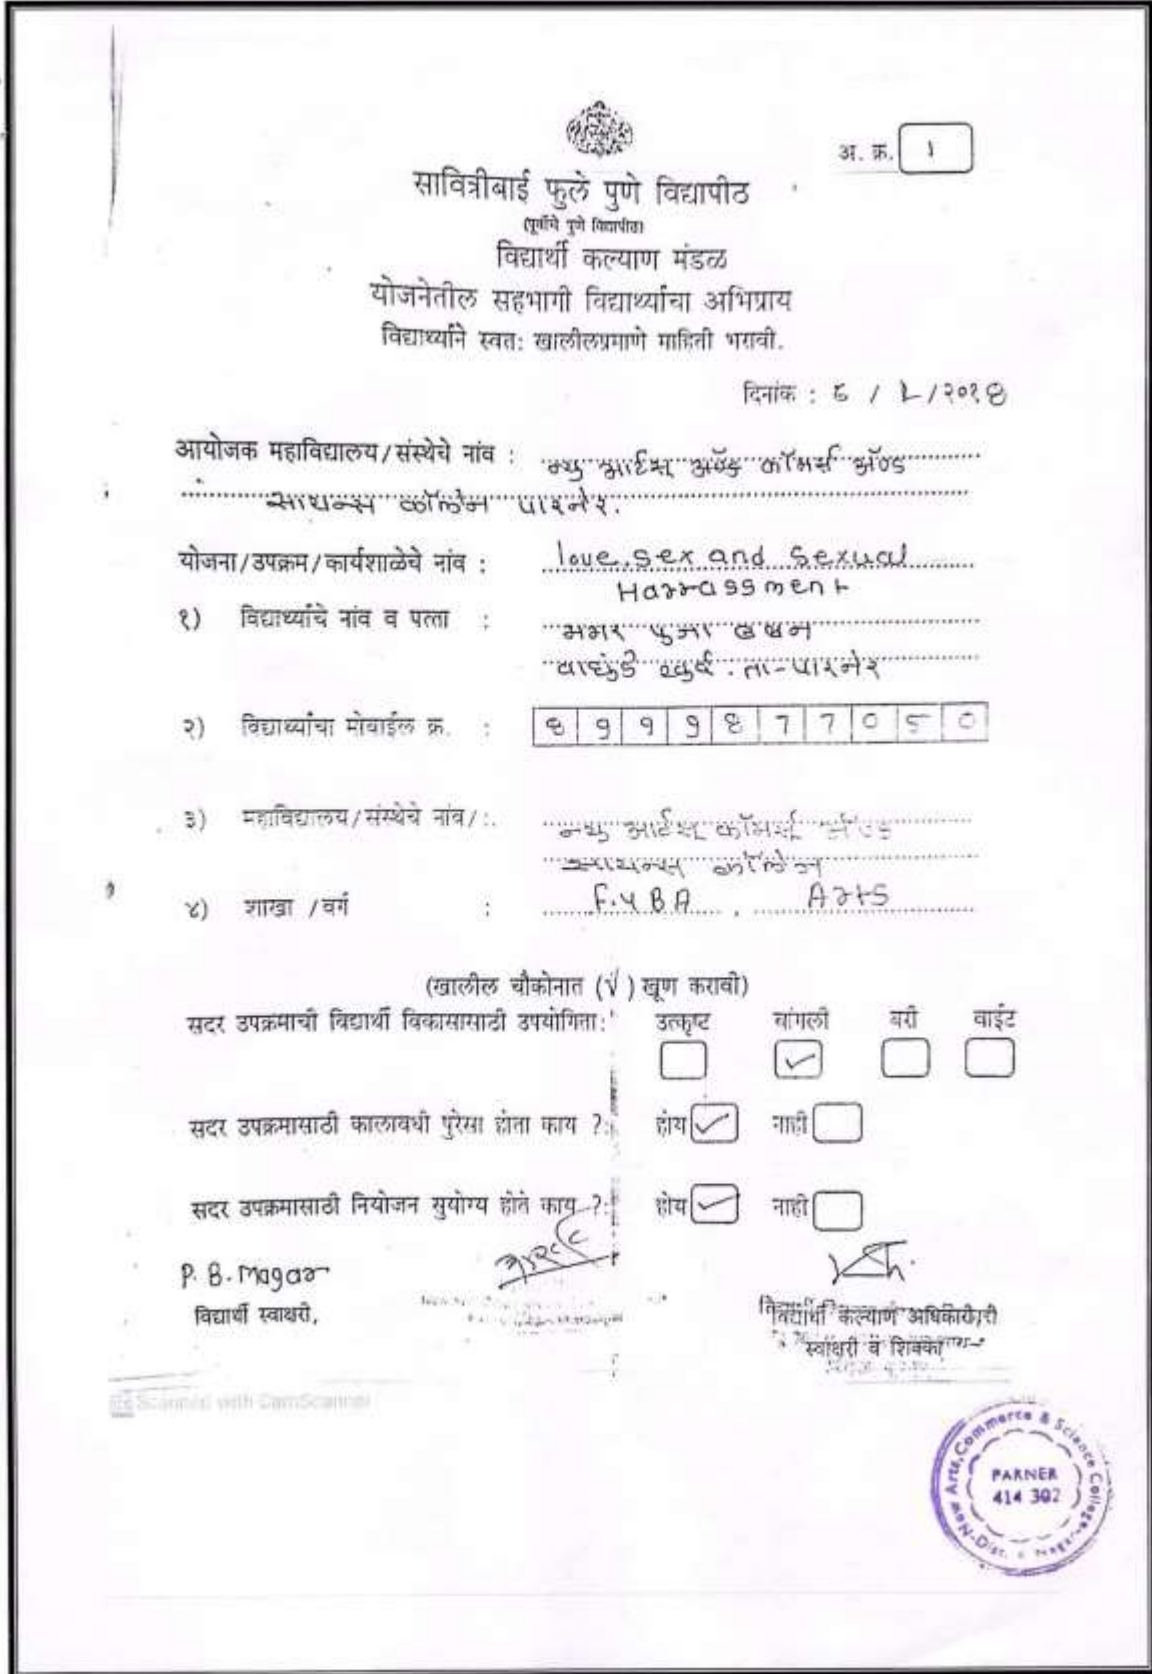 अ. क्र. १
सावित्रीबाई फुले पुणे विद्यापीठ
(पूर्वीचे पुणे विद्यापीठ)
विद्यार्थी कल्याण मंडळ
योजनेतील सहभागी विद्यार्थ्यांचा अभिप्राय
विद्यार्थ्याने स्वत: खालीलप्रमाणे माहिती भरावी.
दिनांक :
आयोजक महाविद्यालय/संस्थेचे नांव : न्यु आर्टस् अॅण्ड कॉमर्स अॅण्ड
सायन्स कॉलेज पारनेर.
योजना/उपक्रम/कार्यशाळेचे नांव : love, sex and sexual
Harrassment
१) विद्यार्थ्यांचे नांव व पत्ता : मगर पुजा बबन
ता-पारनेर
२) विद्यार्थ्यांचा मोबाईल क्र. :
३) महाविद्यालय/संस्थेचे नांव/:. न्यु आर्टस् कॉमर्स अॅण्ड
सायन्स कॉलेज
४) शाखा /वर्ग : F.Y BA , Arts
(खालील चौकोनात (√) खूण करावी)
सदर उपक्रमाची विद्यार्थी विकासासाठी उपयोगिता: उत्कृष्ट चांगली बरी वाईट
✓
सदर उपक्रमासाठी कालावधी पुरेसा होता काय ?: होय ✓ नाही
सदर उपक्रमासाठी नियोजन सुयोग्य होते काय ?: होय ✓ नाही
P. B. Magar
विद्यार्थी स्वाक्षरी,
विद्यार्थी कल्याण अधिकारी
स्वाक्षरी व शिक्का
Scanned with CamScanner
New Arts, Commerce & Science College
PARNER
414 302